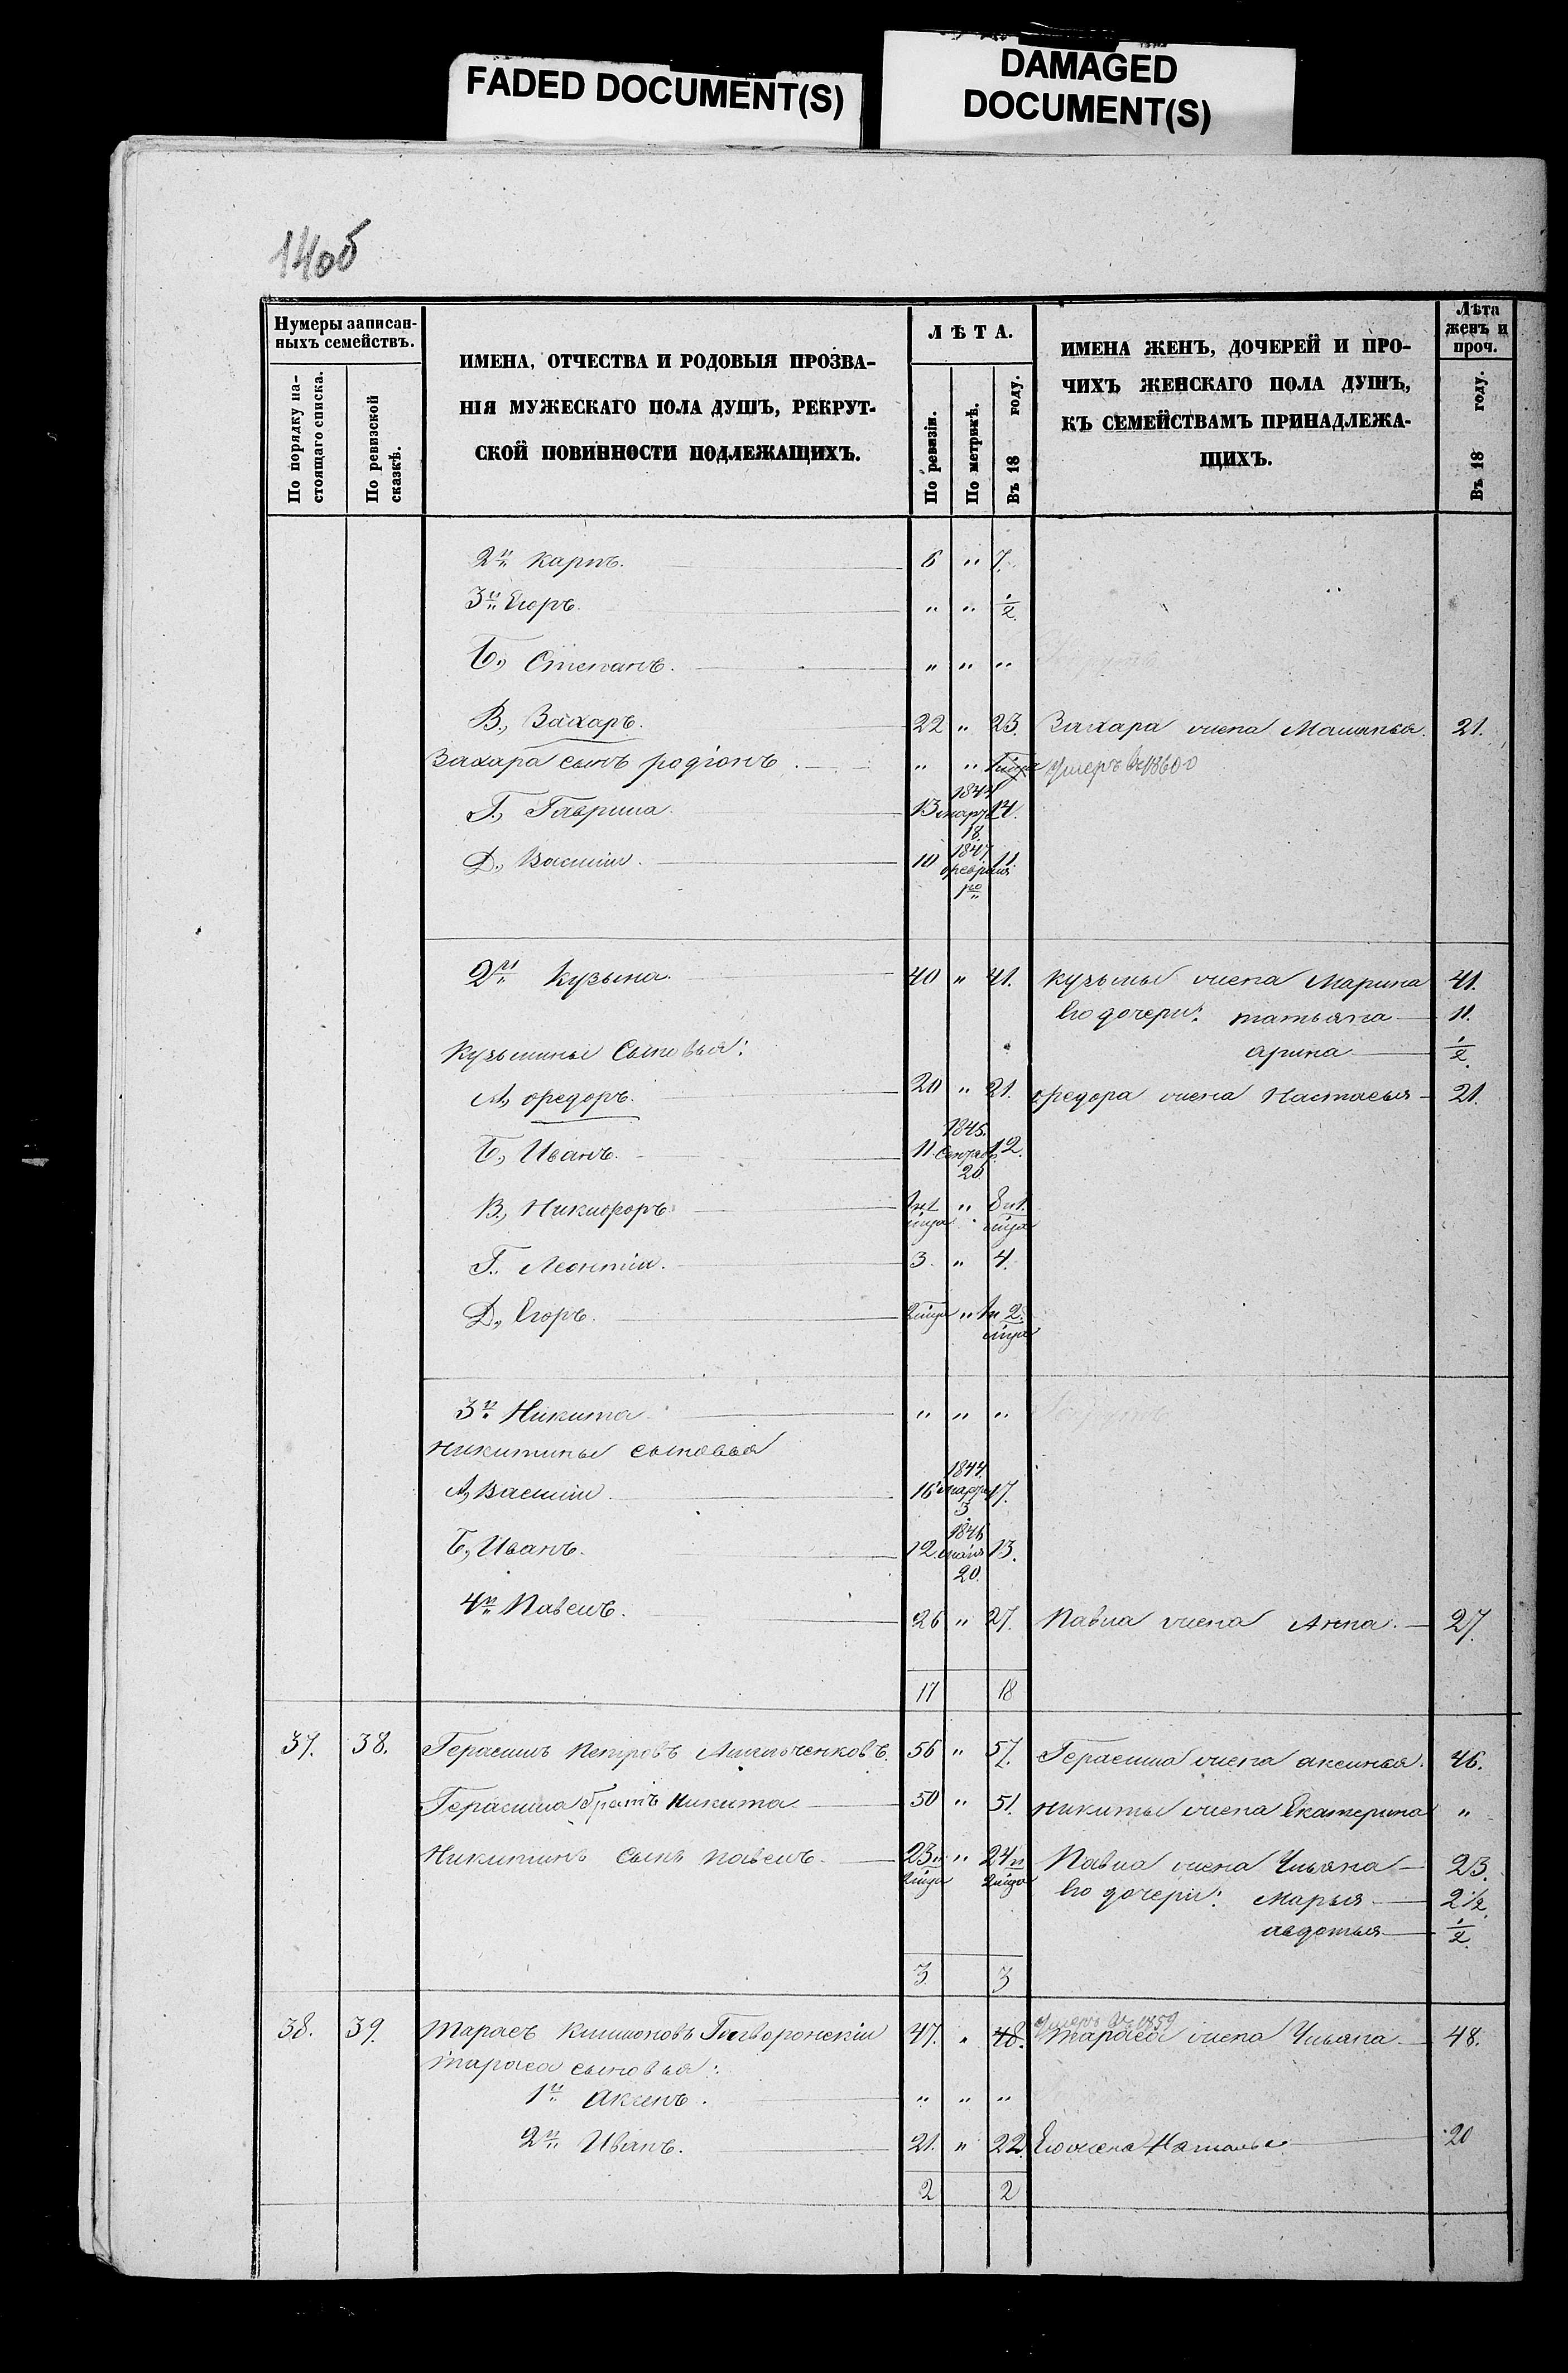 FADED DOCUMENT(S)
DAMAGED
DOCUMENT(S)
14об
Нумеры записан-
ныхъ семействъ.
По порядку на-
стоящаго списка.
По ревизской
сказкѣ.
ИМЕНА, ОТЧЕСТВА И РОДОВЫЯ ПРОЗВА-
НІЯ МУЖЕСКАГО ПОЛА ДУШЪ, РЕКРУТ-
СКОЙ ПОВИННОСТИ ПОДЛЕЖАЩИХЪ.
ЛѢТА.
По ревизіи.
По метрикѣ.
Въ 18 году.
ИМЕНА ЖЕНЪ, ДОЧЕРЕЙ И ПРО-
ЧИХЪ ЖЕНСКАГО ПОЛА ДУШЪ,
КЪ СЕМЕЙСТВАМЪ ПРИНАДЛЕЖА-
ЩИХЪ.
Лѣта
женъ и
проч.
Въ 18 году.
2й Карпъ. 6 " 7.
3й Егоръ. " " 1/2
Б., Степанъ. " " "
В., Захаръ. 22 " 23. Захара жена 21.
Захара сынъ родіонъ. " " умеръ
Г., Гаврила. 13 1844 марта 18. 14.
Д., Василій. 10 1847. февраля 1го 11.
2й Кузьма. 40 " 41. Кузьмы жена Марина 41.
Его дочери: татьяна 11.
арина 1/2
Кузьмины Сыновья:
А, Ѳедоръ. 20 " 21. Ѳедора жена Настасья 21.
Б., Иванъ. 11. 1845. Сентяб. 20. 12.
В., Никифоръ. "
Г., Леонтій. 3. " 4.
Д., Егоръ. "
3й Никита " " "
Никитины сыновья
А, Василій. 16 1844. марта 3 17.
Б., Иванъ. 12. 1846 мая 20. 13.
4й Павелъ. 26 " 27. Павла жена Анна. 27.
17 18
37. 38. Герасимъ Петровъ 56 " 57. Герасима жена аксинья. 46.
Герасима братъ Никита 50 " 51. Никиты жена Екатерина "
Никитинъ сынъ Павелъ. 23 и 2 мца " 24 и 2 мца Павла жена Ульяна 23.
Его дочери: Марья 2 1/2.
авдотья 1/2.
3 3
умеръ въ 1859
38. 39. Тарасъ 47. " 48. Тараса жена Ульяна 48.
Тараса сыновья:
1й Аксенъ. " " "
2й Иванъ. 21. " 22. Его жена Наталья 20
2 2